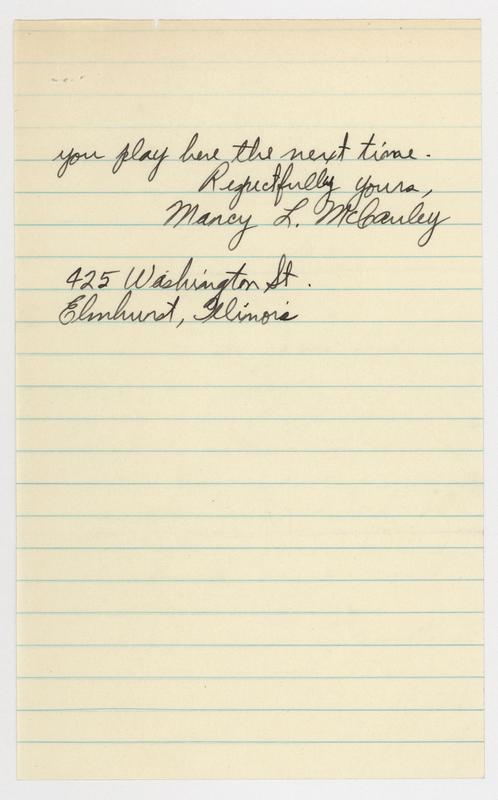 you play here the next time.
Respectfully yours,
Nancy L. McCauley
425 Washington St.
Elmhurst, Illinois